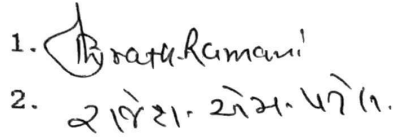 1. Bharath Ramani
2. રાજેશ. એમ. પટેલ.